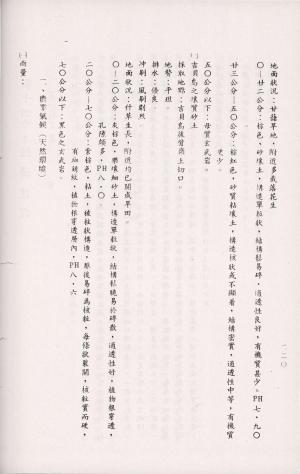 一二〇
地面狀況：甘藷旱地，附近多栽落花生
〇—二二公分：棕色、砂壤土，構造單粒狀，結構鬆易碎，通透性良好，有機質甚少。PH七．九〇
二三公分—五〇公分：棕紅色，砂質粘壤土，構造核狀或不顯着，結構密實，通透性中等，有機質
更少。
五〇公分以下：母質玄武岩。
(一)吉貝島之壤質砂土
採取地點：吉貝島後營崗上切口。
地勢：平坦。
排水：優良。
冲刷：風剝劇烈
地面狀況：什草生長，附近均已開成旱田。
〇—二〇公分：灰棕色，壤壤細砂土，構造單粒狀，結構鬆脆易於碎散，通透性好，植物根穿透，
孔隙頗多，PH八．〇。
二〇公分—七〇公分：紫棕色，粘土，核粒狀構造，壓後易碎為核粒，每條狀裂開，核粒實而硬，
有細銹紋，植物根穿透層內，PH八．六
七〇公分以下：黑色之玄武岩。
一、農業氣候（天然環境）
(一)雨量：